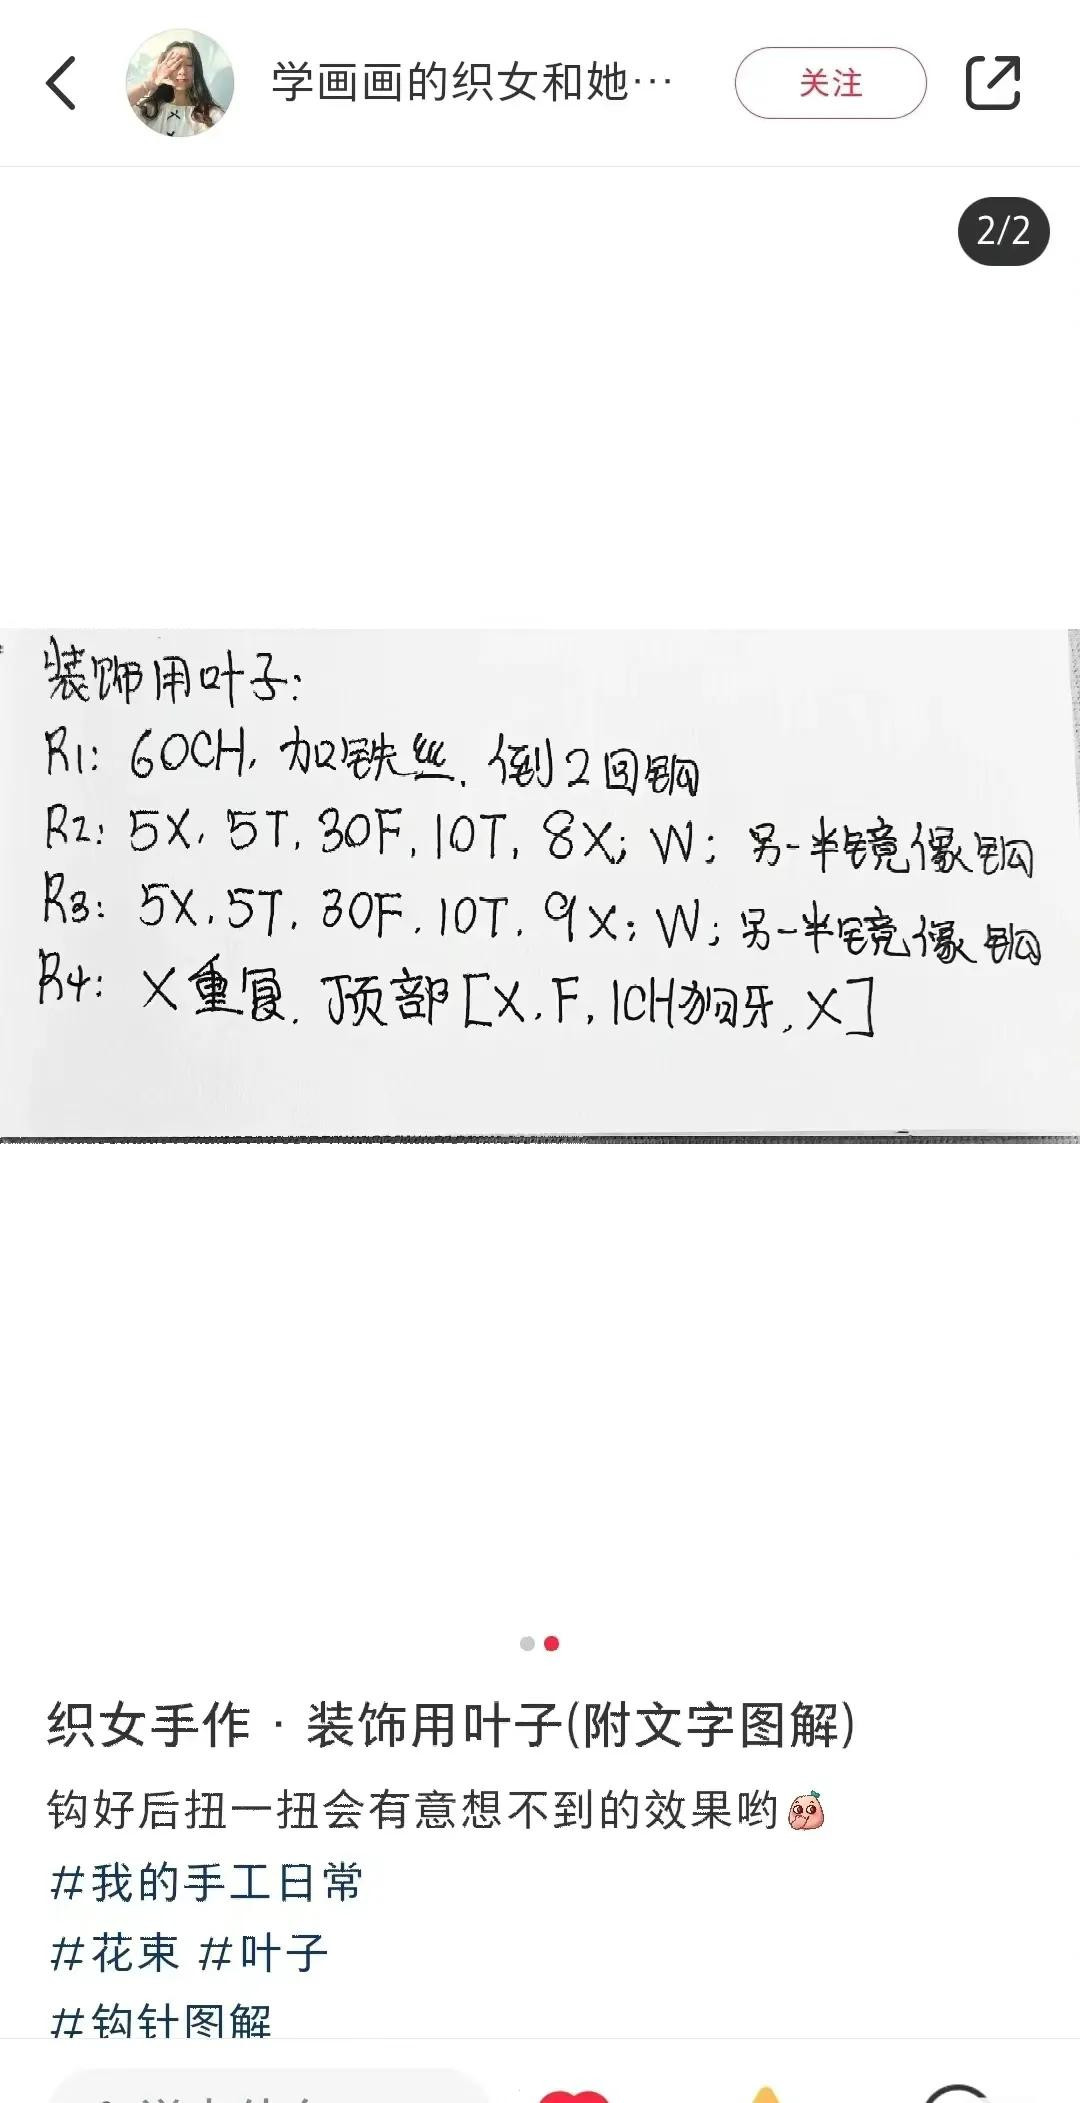 学画画的织女和她…
关注
2/2
装饰用叶子:
R1: 60CH, 加铁丝, 倒2回钩
R2: 5X, 5T, 30F, 10T, 8X; W; 另一半镜像钩
R3: 5X, 5T, 30F, 10T, 9X; W; 另一半镜像钩
R4: X重复, 顶部[X, F, 1CH狗牙, X]
织女手作 · 装饰用叶子(附文字图解)
钩好后扭一扭会有意想不到的效果哟
#我的手工日常
#花束 #叶子
#钩针图解